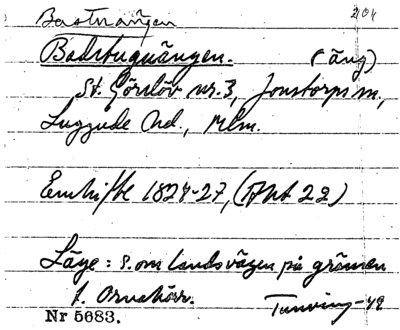 Bastuängen 204
Badstuguängen. (äng)
St. Görslöv nr. 3, Jonstorps sn,
Luggude hd., Mlm.
Enskifte 1824-27, (Akt 22)
Läge: s. om landsvägen på gränsen
t.
Tunving-42
Nr 5683.